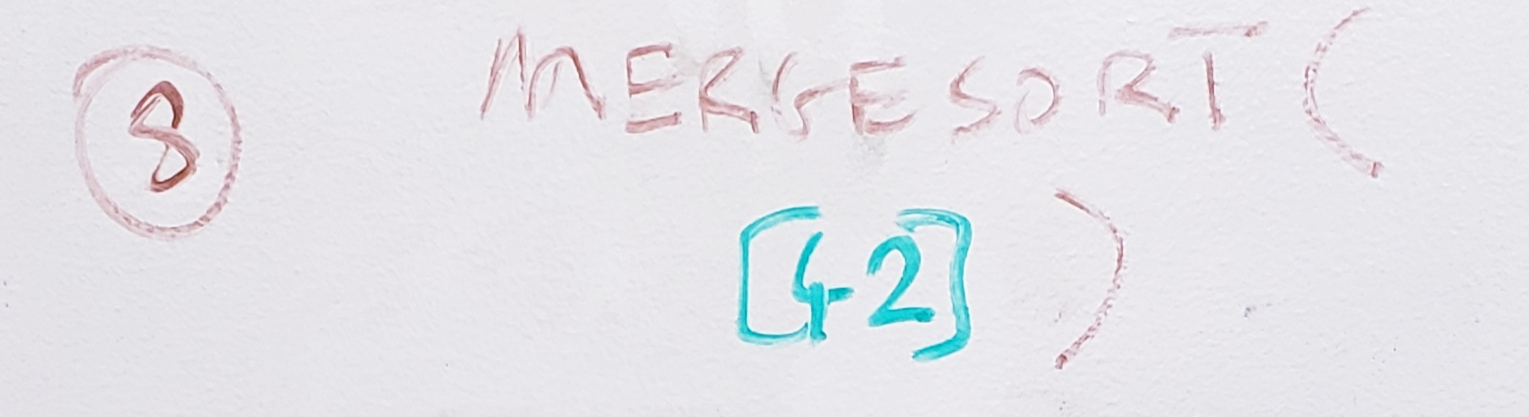 8 MERGESORT(
[42] )